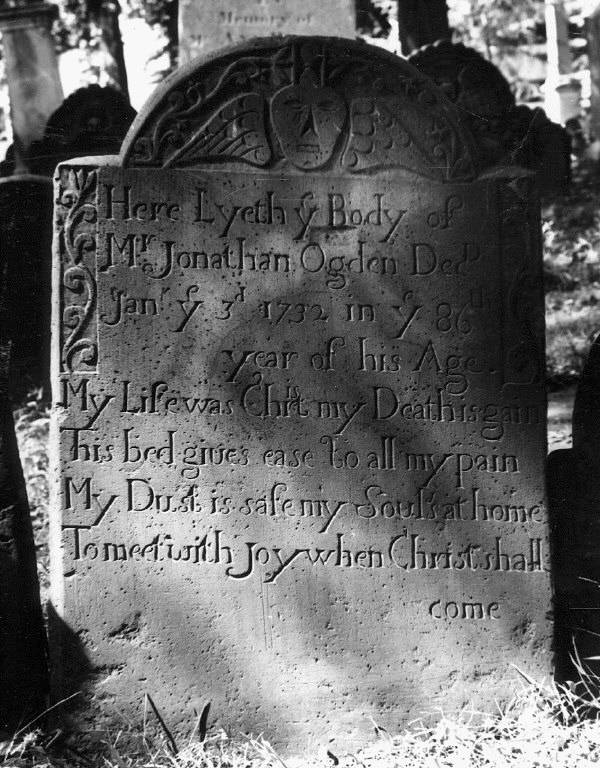 Memory of
Here Lyeth yͤ Body of
Mʳˢ Jonathan Ogden Decᴰ
Janʳ yͤ 3ᵈ 1732 in yͤ 86ᵗʰ
year of his Age
My Life was Chˢᵗ my Death is gain
This bed gives ease to all my pain
My Dust is safe my Soul's at home
To meet with Joy when Christ shall
come